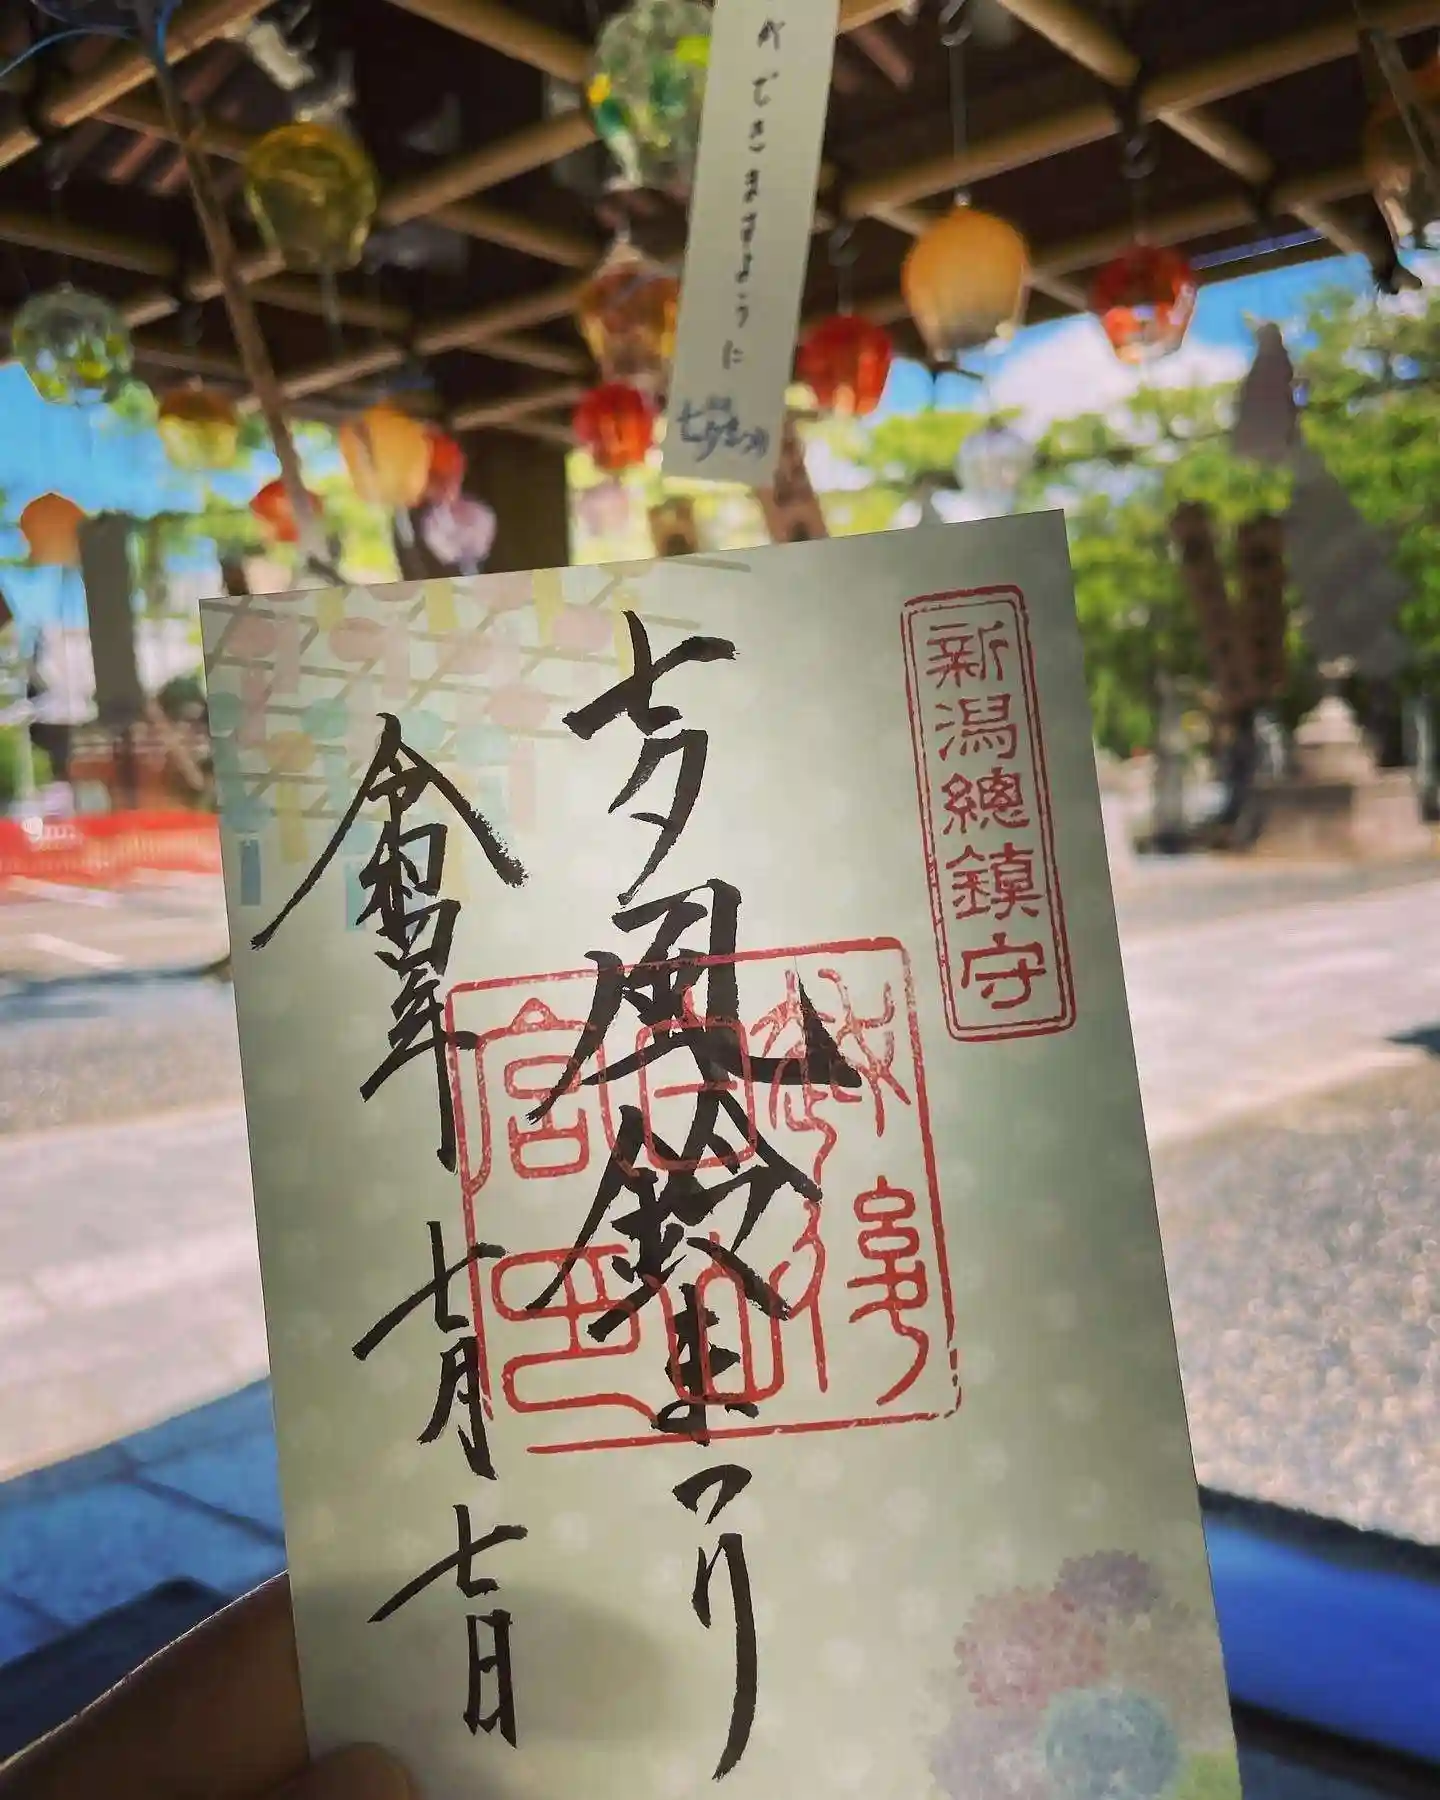 できますように
七夕まつり
新潟總鎮守
七夕風鈴まつり
令和四年
七月七日
白山宮印